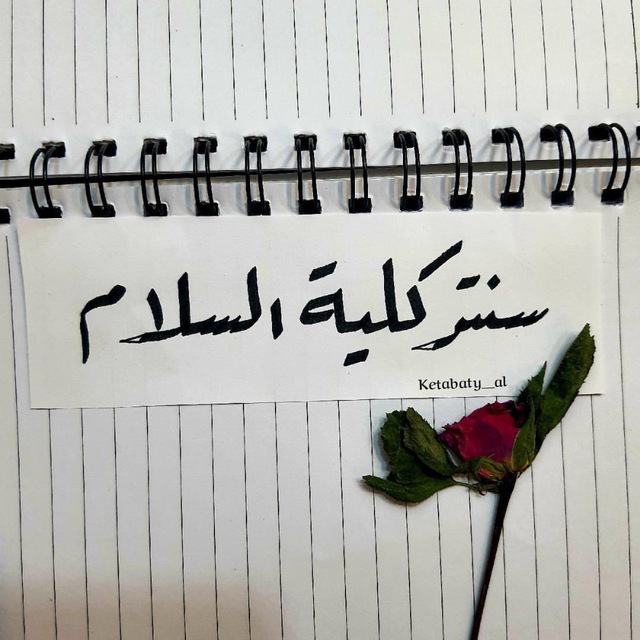 سنتر كلية السلام
Ketabaty_al